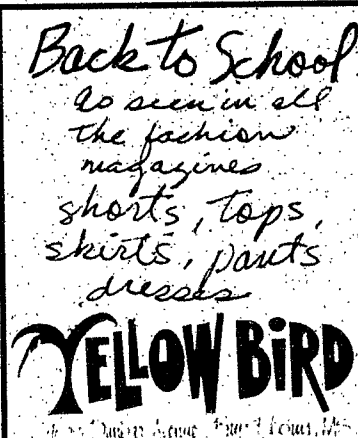 Back to School
as seen in all
the fashion
magazines
shorts, tops,
skirts, pants
dresses
YELLOW BIRD
Avenue,